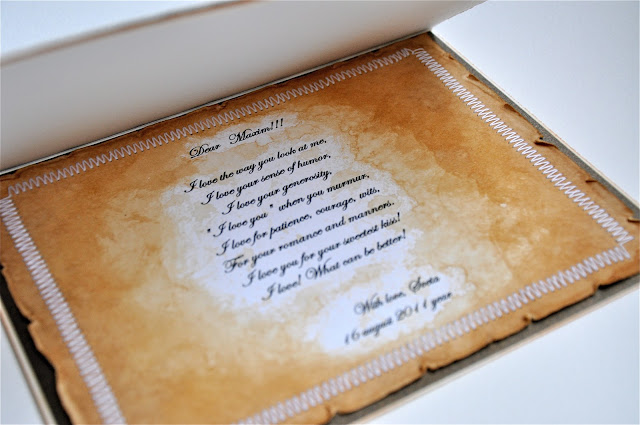 Dear Maxim!!!
I love the way you look at me,
I love your sense of humor,
I love your generosity,
" I love you " when you murmur,
I love for patience, courage, wits,
For your romance and manners.
I love you for your sweetest kiss!
I love! What can be better!
With love, Sveta
16 august 2011 year